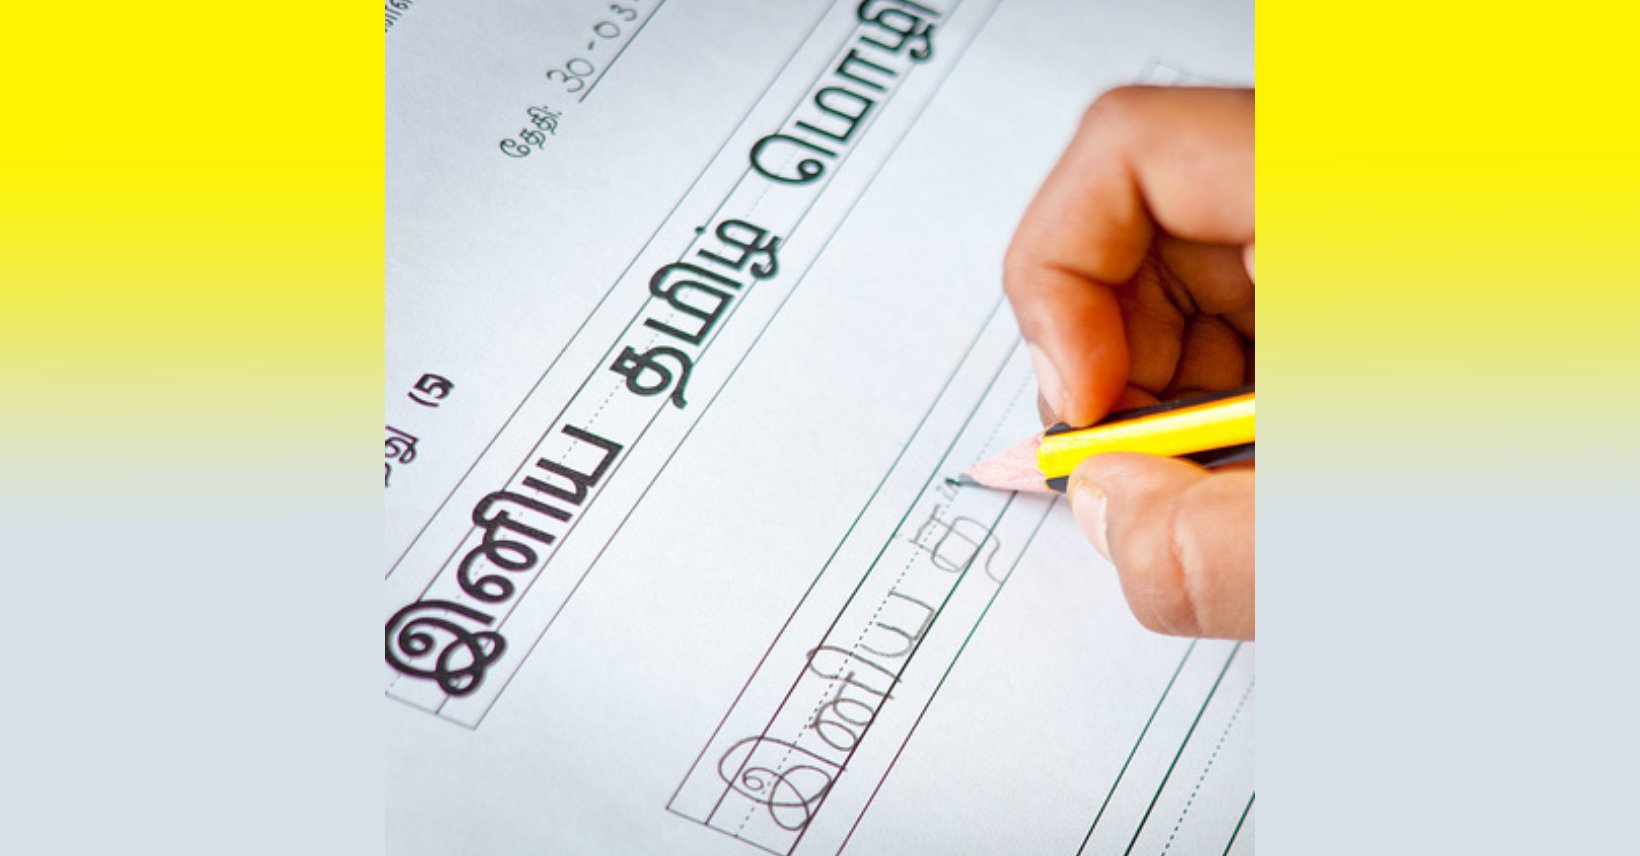 தேதி: 30-03-
இனிய தமிழ் மொழி
இனிய த